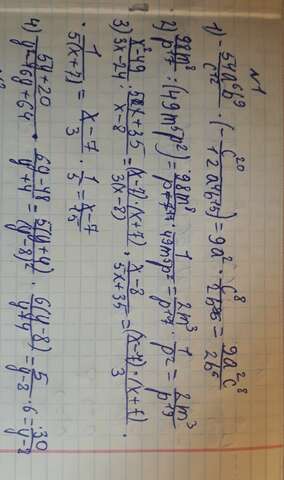 N1
1) -54a⁶b⁹/c¹² · (-c²⁰/12a⁴b¹⁵) = 9a² · c⁸/2b⁶ = 9a²c⁸/2b⁶
2) 98m⁸/p¹⁷ : (49m⁵p²) = 98m⁸/p¹⁷ · 1/49m⁵p² = 2m³/p¹⁷ · 1/p² = 2m³/p¹⁹
3) x²-49/3x-24 : 5x+35/x-8 = (x-7)·(x+7)/3(x-8) · x-8/5x+35 = (x-7)·(x+7)/3 ·
· 1/5(x+7) = x-7/3 · 1/5 = x-7/15
4) 5y+20/y²-16y+64 · 6y-48/y+4 = 5(y+4)/(y-8)² · 6(y-8)/y+4 = 5/y-8 · 6 = 30/y-8